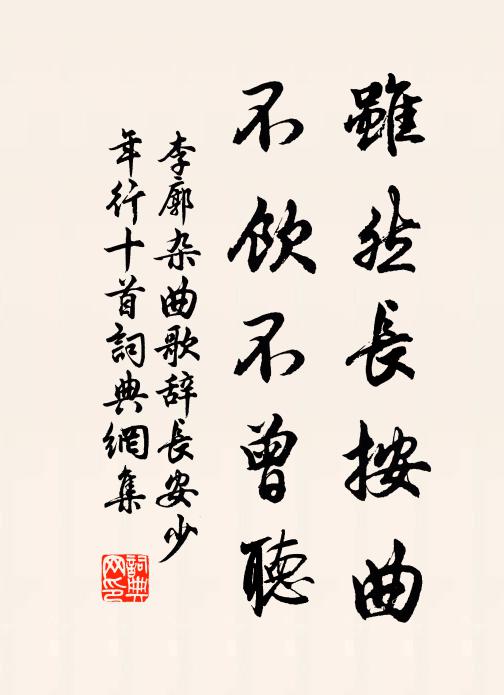 雖然長按曲
不飲不曾聽
李廓杂曲歌辞長安少
年行十首詞典網集
詞典
网印